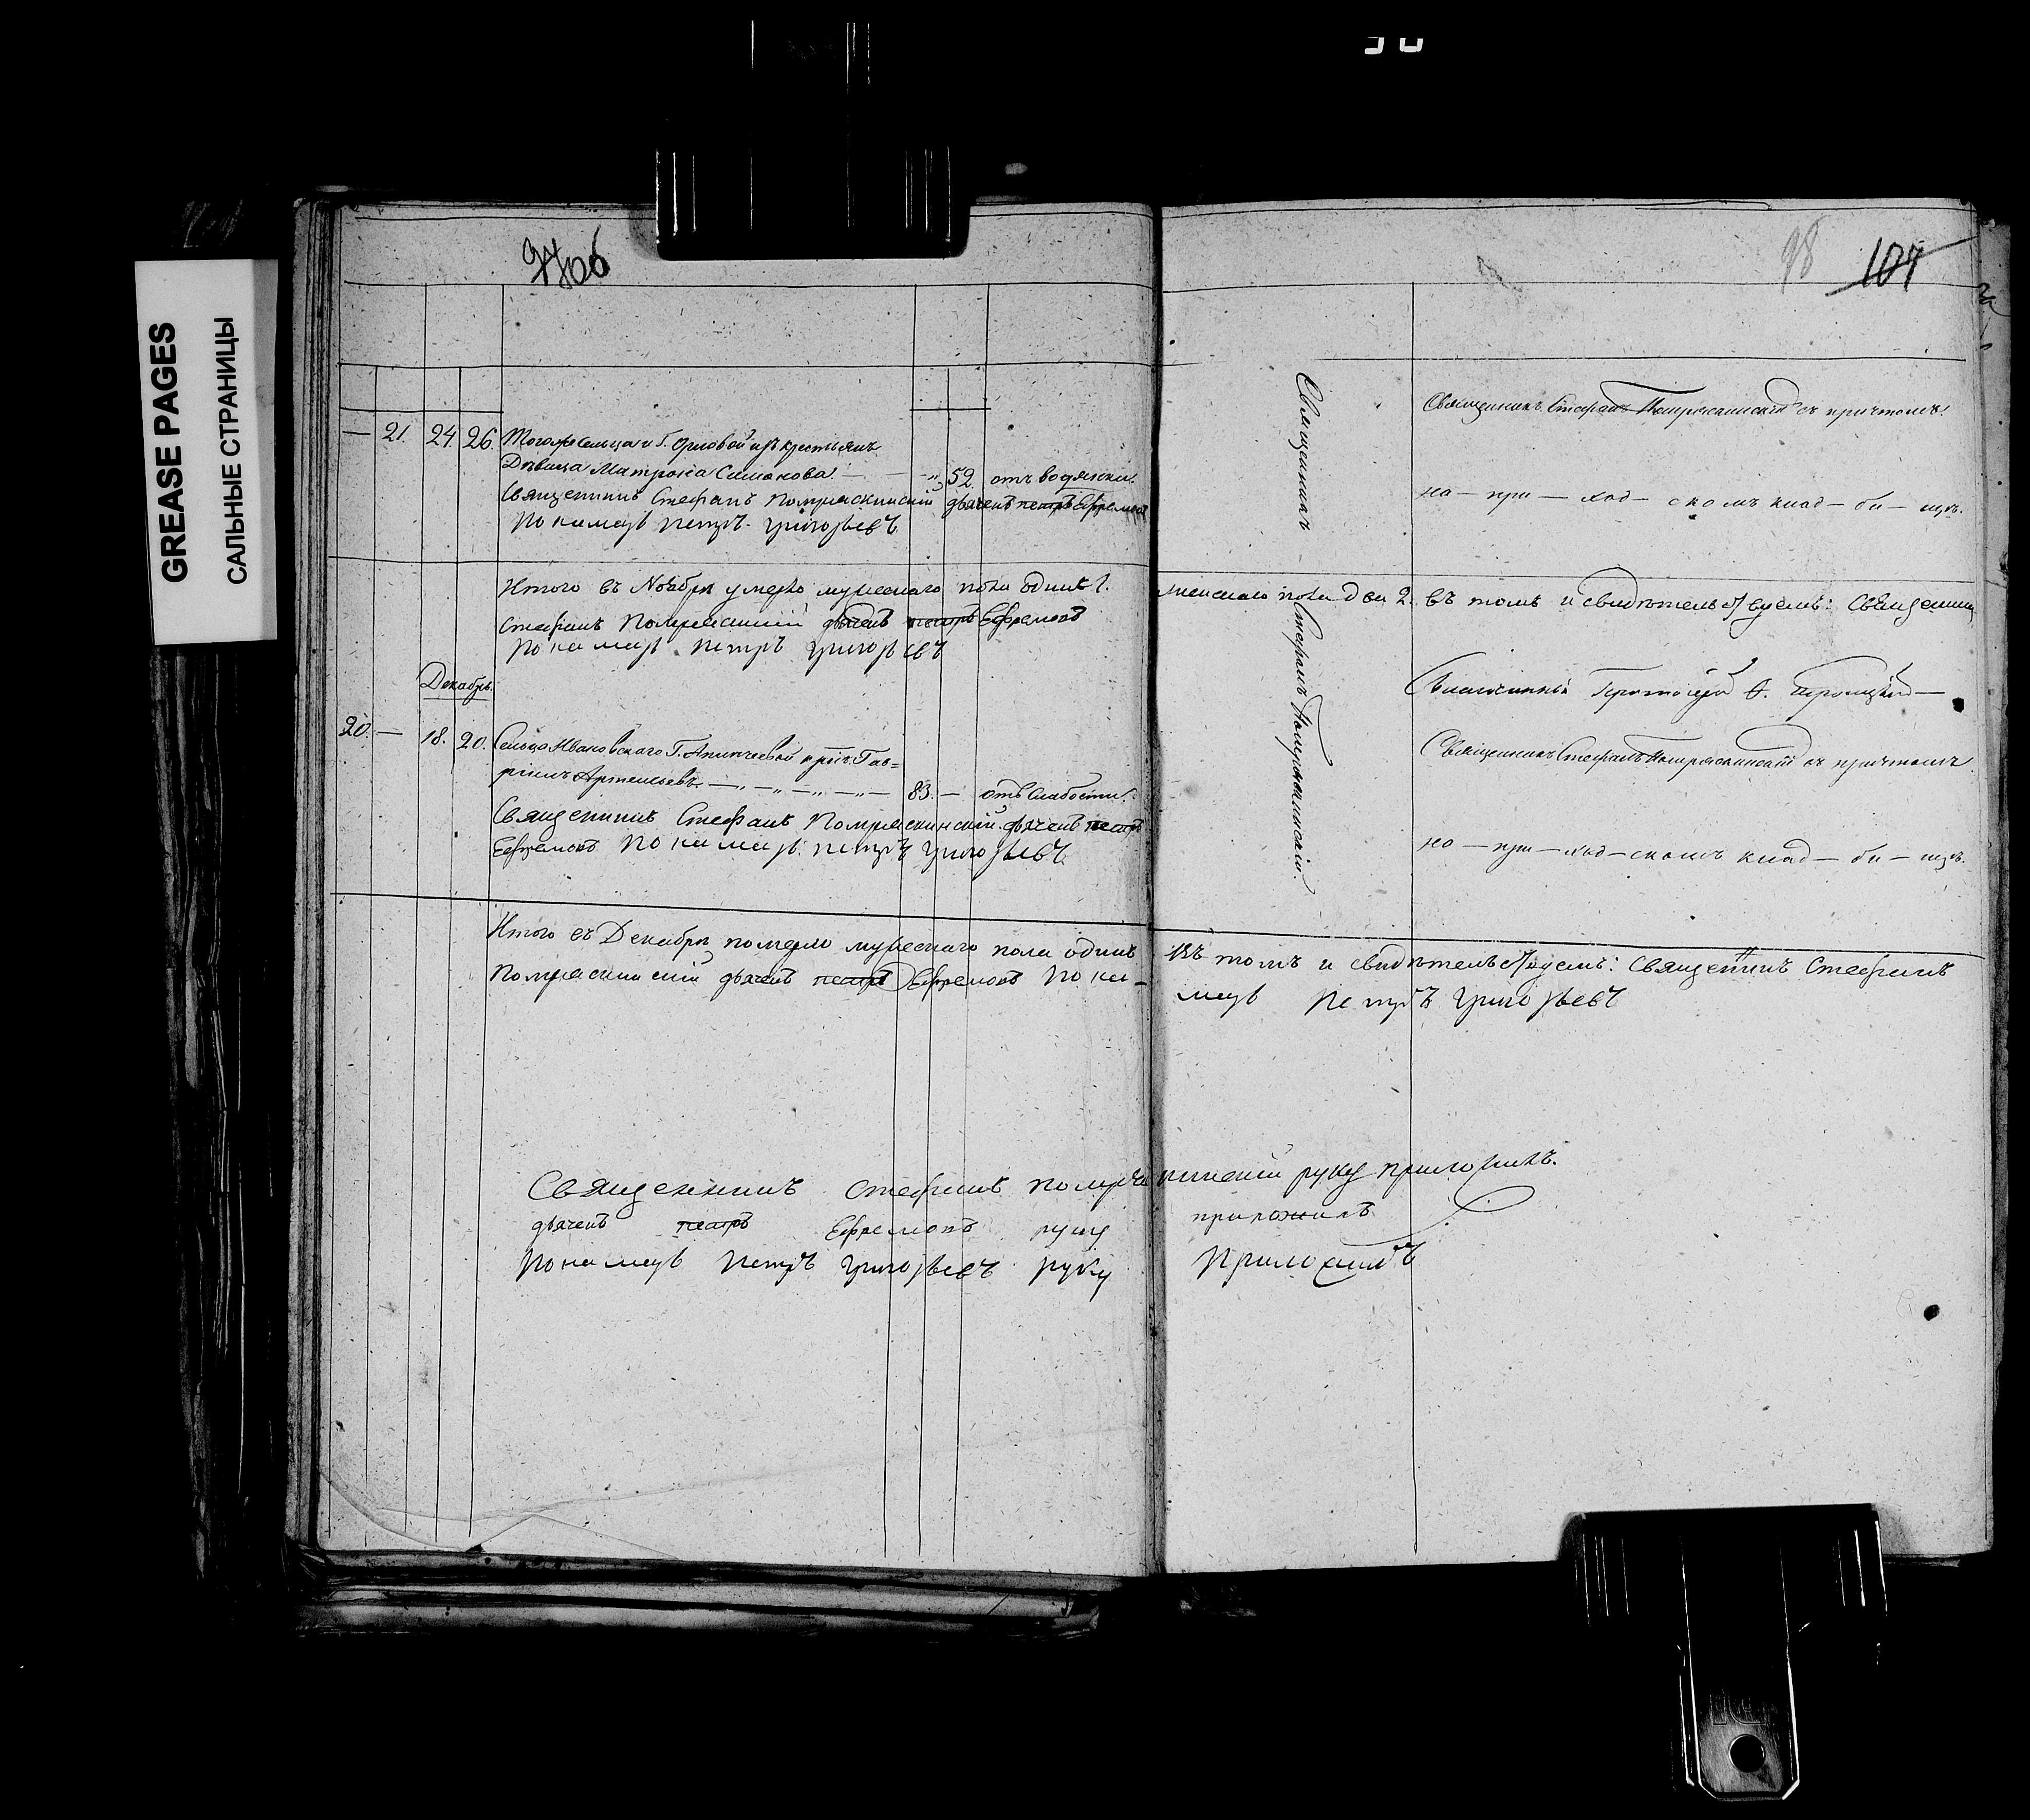 GREASE PAGES
САЛЬНЫЕ СТРАНИЦЫ
98
107
— 21. 24. 26. Тогожъ сельца и Г. Орловой изъ крестьянъ
Дѣвица Матрона Симонова. — „ 52. отъ водянки.
Священникъ Стефанъ Помряскинскій дьячекъ петръ Ефремовъ
Пономарь петръ григорьевъ
Священникъ Стефанъ Помряскинскій
Священникъ Стефанъ Помряскинскій съ причтомъ.
на — при — ход — скомъ клад — би — щѣ.
Итого въ Ноябрѣ умерло мужескаго пола одинъ 1. женскаго пола две 2. въ томъ и свидѣтельствуемъ: Священникъ
Стефанъ Помряскинскій дьячекъ петръ Ефремовъ
Пономарь петръ григорьевъ
Декабрь.
20. — 18. 20. Сельца Ивановскаго Г. крест. Гав=
ріилъ Артемьевъ. — „ — „ — „ — „ — 83. — отъ слабости.
Священникъ Стефанъ Помряскинскій дьячекъ петръ
Ефремовъ Пономарь петръ григорьевъ
Благочинный Протоіерей
Священникъ Стефанъ Помряскинскій съ причтомъ
на — при — ход — скомъ клад — би — щѣ.
Итого въ Декабрѣ померло мужескаго пола одинъ въ томъ и свидѣтельствуемъ: Священникъ Стефанъ
Помряскинскій дьячекъ петръ Ефремовъ Пономарь петръ григорьевъ
Священникъ Стефанъ Помряскинскій руку приложилъ.
дьячекъ петръ Ефремовъ руку приложилъ
Пономарь петръ григорьевъ руку приложилъ